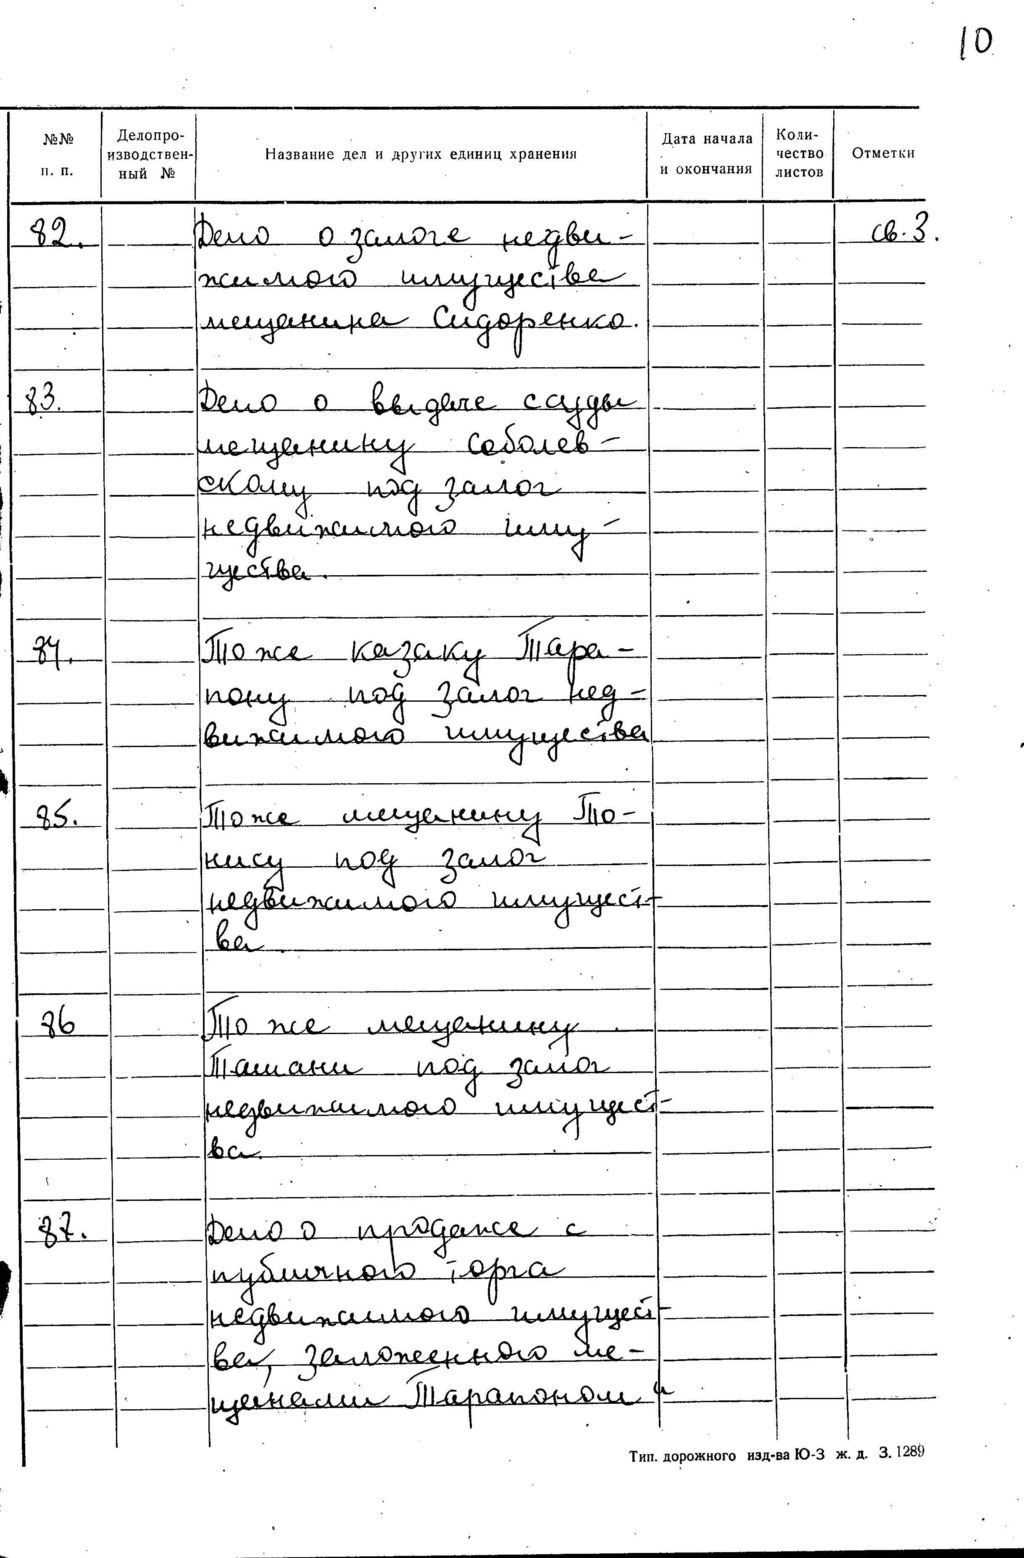 10
№№ п. п.
Делопро-изводствен-ный №
Название дел и других единиц хранения
Дата начала и окончания
Коли-чество листов
Отметки
82. Дело о залоге недви- св. 3.
жимого имущества
мещанина Сидоренко.
83. Дело о выдаче ссуды
мещанину Соболев-
скому под залог
недвижимого иму-
щества.
84. То же казаку Тара-
пону под залог нед-
вижимого имущества
85. То же мещанину То-
нису под залог
недвижимого имущест-
ва.
86 То же мещанину
Ташани под залог
недвижимого имущест-
ва.
87. Дело о продаже с
публичного торга
недвижимого имущест-
ва, заложенного ме-
щанами Тарапоном и
Тип. дорожного изд-ва Ю-З ж. д. З. 1289